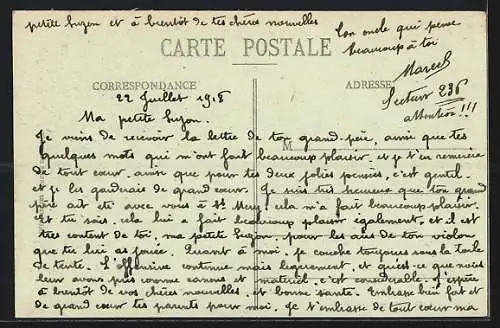 petite Suzon et à bientôt de tes chères nouvelles
Ton oncle qui pense
beaucoup à toi
Marcel
Secteur 236
attention!!!
CARTE POSTALE
CORRESPONDANCE
ADRESSE
M
22 Juillet 1918
Ma petite Suzon.
Je viens de recevoir la lettre de ton grand-père, ainsi que tes
quelques mots qui m'ont fait beaucoup plaisir. et je t'en remercie
de tout cœur. ainsi que pour tes deux jolies pensées, c'est gentil.
et je les garderais de grand cœur. Je suis très heureux que ton grand
père ait été avec vous à St Mery, cela m'a fait beaucoup plaisir.
Et tu sais, cela lui a fait beaucoup plaisir également, et il est
très content de toi, ma petite Suzon, pour les airs de ton violon
que tu lui as jouée. Quant à moi, je couche toujours sous la toile
de tente. L'offensive continue mais lentement, et qu'est-ce que nous
leur avons pris comme canons et matériel, c'est considérable. J'espère
à bientôt de vos chères nouvelles, et bonne santé. Embrasse bien fort et
de grand cœur tes parents pour moi. Je t'embrasse de tout cœur ma